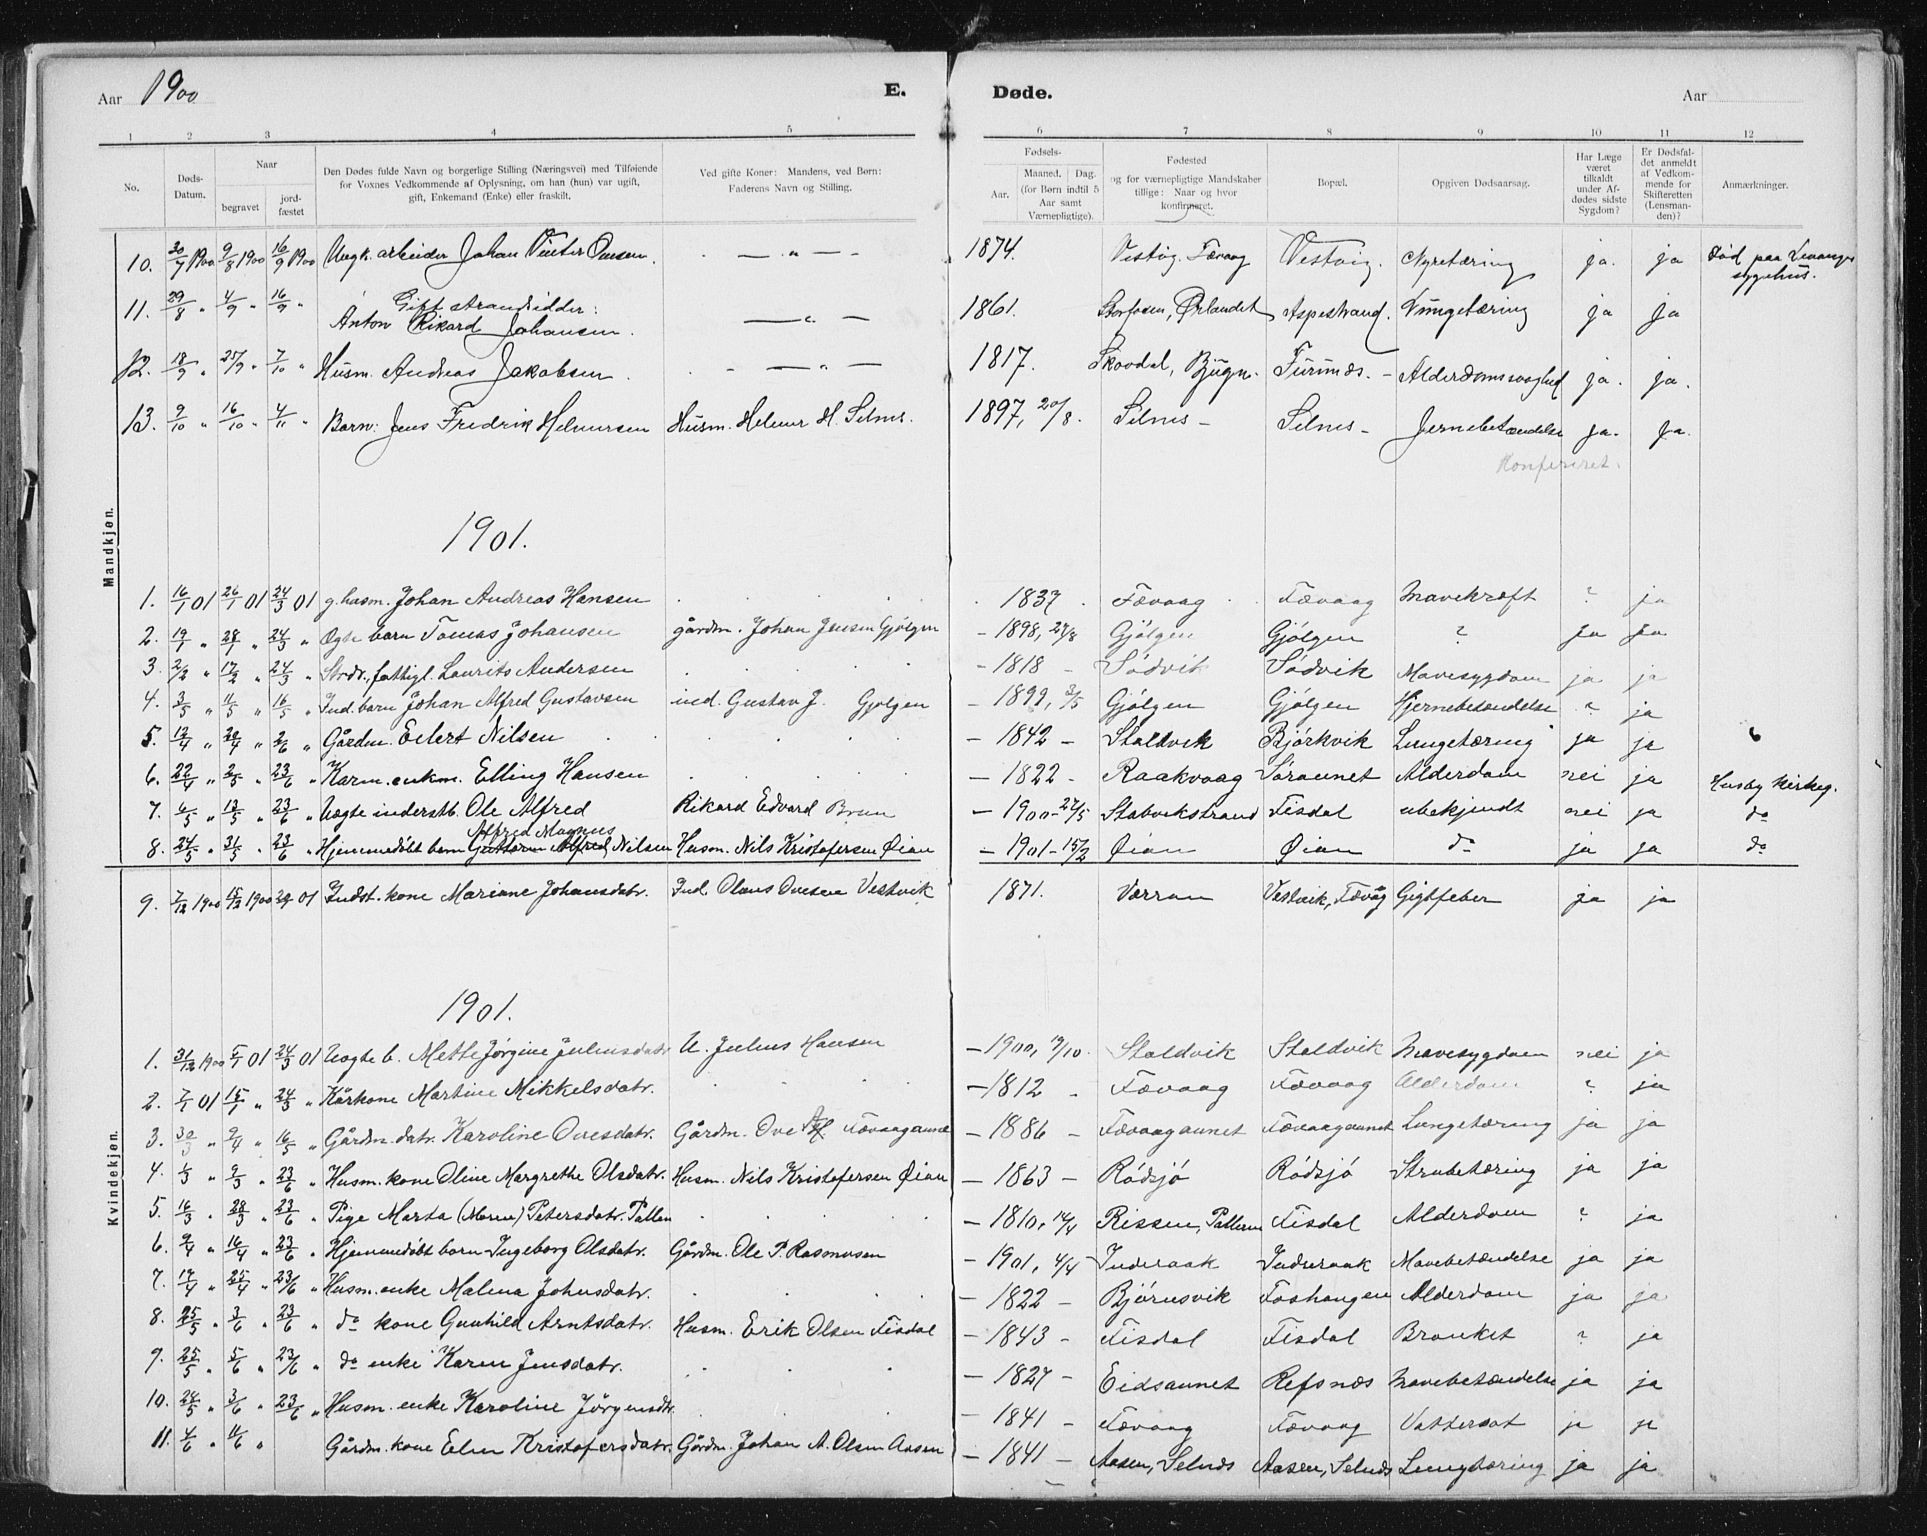 Aar 1900 E. Døde. Aar
1 2 3 4 5 6 7 8 9 10 11 12
No. Døds-Datum. Naar begravet jordfæstet Den Dødes fulde Navn og borgerlige Stilling (Næringsvei) med Tilføiende for Voxnes Vedkommende af Oplysning, om han (hun) var ugift, gift, Enkemand (Enke) eller fraskilt. Ved gifte Koner: Mandens, ved Børn: Faderens Navn og Stilling. Fødsels- Aar. Maaned, Dag. (for Børn indtil 5 Aar samt Værnepligtige). Fødested og for værnepligtige Mandskaber tillige: Naar og hvor konfirmeret. Bopæl. Opgiven Dødsaarsag. Har Læge været tilkaldt under Afdødes sidste Sygdom? Er Dødsfaldet anmeldt af Vedkommende for Skifteretten (Lensmanden)? Anmærkninger.
Mandkjøn.
10. 30/7 1900 9/8 1900 16/9 1900 Ungk. arbeider Johan Ovesen. — „ — 1874. Vestvig. Fævaag Vestvig. Nyretæring ja. ja Død paa Levanger sygehus.
11. 29/8 „ 4/9 „ 16/9 „ Gift strandsidder: Anton Rikard Johansen. — „ — 1861. Storfosen, Ørlandet Aspestrand. Lungetæring ja ja
12. 18/9 „ 25/9 „ 7/10 „ Husm. Andreas Jakobsen. — „ — 1817. Skovdal, Bjugn. Furunæs. – Alderdomssvaghed ja. ja.
13. 9/10 „ 16/10 „ 4/11 „ Barn: Jens Fredrik Helmersen Husm. Helmer H. Selnes. 1897, 20/8. Selnes – Selnes – Jernebetændelse ja. ja.
Konfereret.
1901.
1. 16/1 01 26/1 01 24/3 01 g. husm. Johan Andreas Hansen 1837 Fævaag Fævaag Mavekræft ? ja
2. 19/1 „ 28/1 „ 24/3 „ Ægte barn Tomas Johansen gårdm. Johan Jensen Gjølgen – 1898, 27/8 Gjølgen Gjølgen ? ja ja
3. 2/2 „ 17/2 „ 24/3 „ Strdr., fattigl. Laurits Andersen – 1818 – Sødvik Sødvik Mavesygdom ja ja
4. 3/5 „ 11/5 „ 16/5 „ Ind. barn Johan Alfred Gustavsen ind. Gustav J. Gjølgen – 1899, 3/5 Gjølgen Gjølgen Hjernebetændelse ? ja
5. 12/4 „ 20/4 „ 2/6 „ Gårdm. Eilert Nilsen – 1842 – Staldvik Bjørkvik Lungetæring ja ja
6. 22/4 „ 2/5 „ 23/6 „ Karm. enkm. Elling Hansen – 1822 – Raakvaag Søraunet Alderdom nei ja Husby kirkeg.
7. 6/5 „ 13/5 „ 23/6 „ Uægte inderstb. Ole Alfred Rikard Edvard Brun – 1900–27/5 Stabvikstrand Fisdal ubekjendt nei ja do
8. 24/5 „ 31/5 „ 23/6 „ Hjemmedøbt barn Guttorm Alfred Alfred Magnus Nilsen Husm. Nils Kristofersen Øian – 1901–15/2 Øian Øian do ja ja do
Kvindekjøn.
9. 7/12 1900 15/12 1900 01 Indst. kone Mariane Johansdatr. Ind. Olaus Ovesen Vestvik 1871. Værran Vestvik, Fævåg Gigtfeber ja ja
1901.
1. 31/12 1900 5/1 01 24/3 01 Uægte b. Mette Jørgine Juliusdatr U. Julius Hansen – 1900, 19/10. Staldvik Staldvik Mavesygdom nei ja
2. 7/1 01 15/1 „ 24/3 „ Kårkone Martine Mikkelsdatr. – 1812 – Fævaag Fævaag Alderdom ? ja
3. 30/3 „ 9/4 „ 16/5 „ Gårdm. datr. Karoline Ovesdatr. Gårdm. Ove Fævaagaunet – 1886 – Fævaagaunet Fævaagaunet Lungetæring ja ja
4. 1/3 „ 9/3 „ 23/6 „ Husm. kone Oline Margrethe Olsdatr. Husm. Nils Kristofersen Øian – 1863 – Rødsjø Rødsjø Strubetæring ja ja
5. 16/3 „ 28/3 „ 23/6 „ Pige Marta (Maren) Petersdatr. Patten – 1810, 14/4 Rissen, Fisdal Alderdom ? ja
6. 9/4 „ 16/4 „ 23/6 „ Hjemmedøbt barn Ingeborg Olsdatr. Gårdm. Ole P. Rasmusen – 1901, 4/4 Inderaak Inderaak Mavebetændelse ja ja
7. 17/4 „ 25/4 „ 23/6 „ Husm. enke Malena Johnsdatr. – 1822 – Bjørnsvik Foshaugen Alderdom ja ja
8. 25/5 „ 3/6 „ 23/6 „ do kone Gunhild Arntsdatr. Husm. Erik Olsen Fisdal – 1843 – Fisdal Fisdal Bronket ? ja
9. 25/5 „ 5/6 „ 23/6 „ do enke Karen Jensdatr. – 1827 – Eidsaunet Refsnæs Mavebetændelse ja ja
10. 24/5 „ 3/6 „ 23/6 „ Husm. enke Karoline Jørgensdtr. – 1841 – Fævaag Fævaag Vattersot ja ja
11. 4/6 „ 11/6 „ Gårdm. kone Elen Kristofersdatr. Gårdm. Johan A. Olsen Aasen – 1841 – Aasen, Selnæs Aasen, Selnæs Lungtæring ja ja